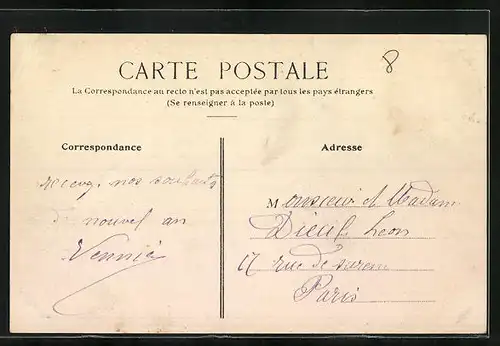 8
CARTE POSTALE
La Correspondance au recto n'est pas acceptée par tous les pays étrangers
(Se renseigner à la poste)
Correspondance
Adresse
recevez nos souhaits
de nouvel an
Monsieur et Madame
Léon
17 rue de
Paris